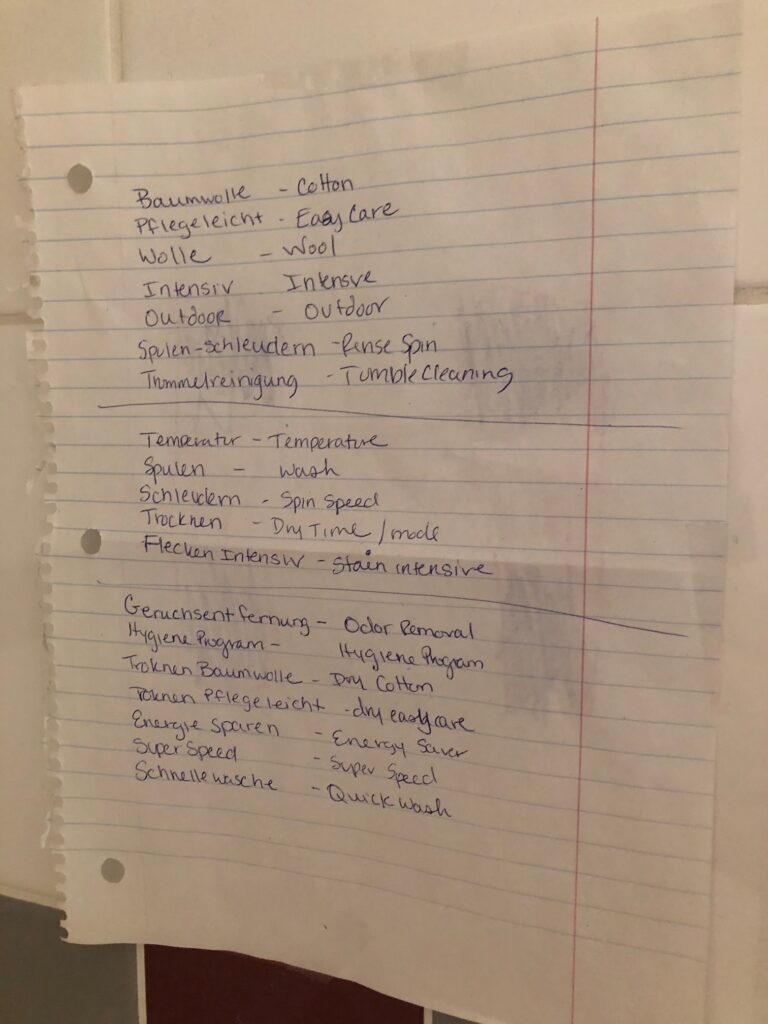 Baumwolle - Cotton
Pflegeleicht - Easy Care
Wolle - Wool
Intensiv Intensve
Outdoor - Outdoor
Spulen-schleudern - Rinse Spin
Trommelreinigung - Tumble Cleaning
Temperatur - Temperature
Spulen - wash
Schleudern - Spin Speed
Trocknen - Dry Time / mode
Flecken Intensiv - Stain intensive
Geruchsentfernung - Odor Removal
Hygiene Program - Hygiene Program
Troknen Baumwolle - Dry Cotton
Troknen Pflegeleicht - dry easy care
Energie Sparen - Energy Saver
Super Speed - Super Speed
Schnellewasche - Quick Wash